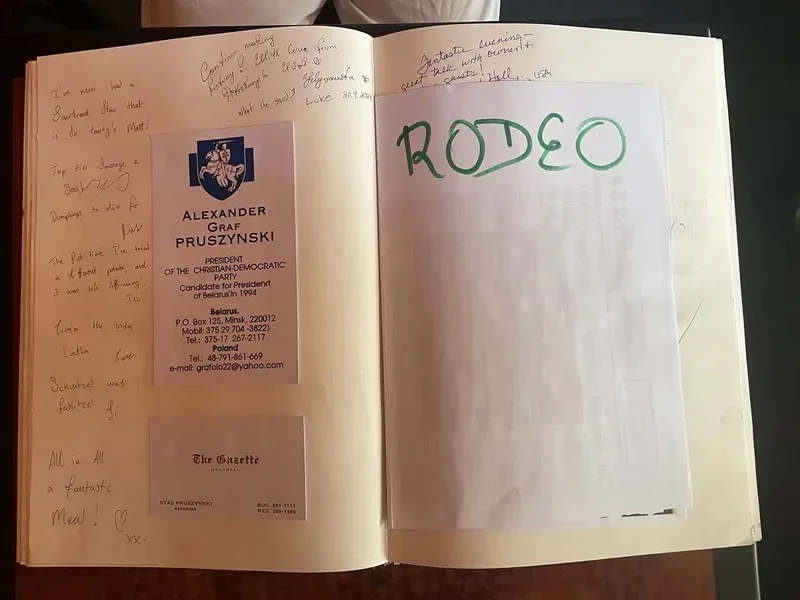 I've never had a
Sourkraut Stew that
is so tasty! Matt!
Top tier Sausage &
Dumplings to die for
The first time I've tried
a different potato and
it was life Affirming.
Livin the vida
Latka
Schnitzel was
All in All
a fantastic
Meal! ♡
xx-
Continue making
history! Edith Cove from
Pittsburgh USA &
what she said ↑ Luke 20.9.
ALEXANDER
GRAF
PRUSZYNSKI
PRESIDENT
OF THE CHRISTIAN-DEMOCRATIC
PARTY
Candidate for Presidenrt
of Belarus'in 1994
Belarus.
P.O. Box 125, Minsk, 220012
Mobil: 375 29 704 -3822)
Tel.: 375-17 267-2117
Poland
Tel.: 48-791-861-669
e-mail: grafolo22@yahoo.com
The Gazette
MONTREAL
STAS PRUSZYNSKI
REPORTER
BUS. 861-1111
RES. 288-1486
Fantastic evening-
great talk with owner +
guests! Holly, USA
RODEO